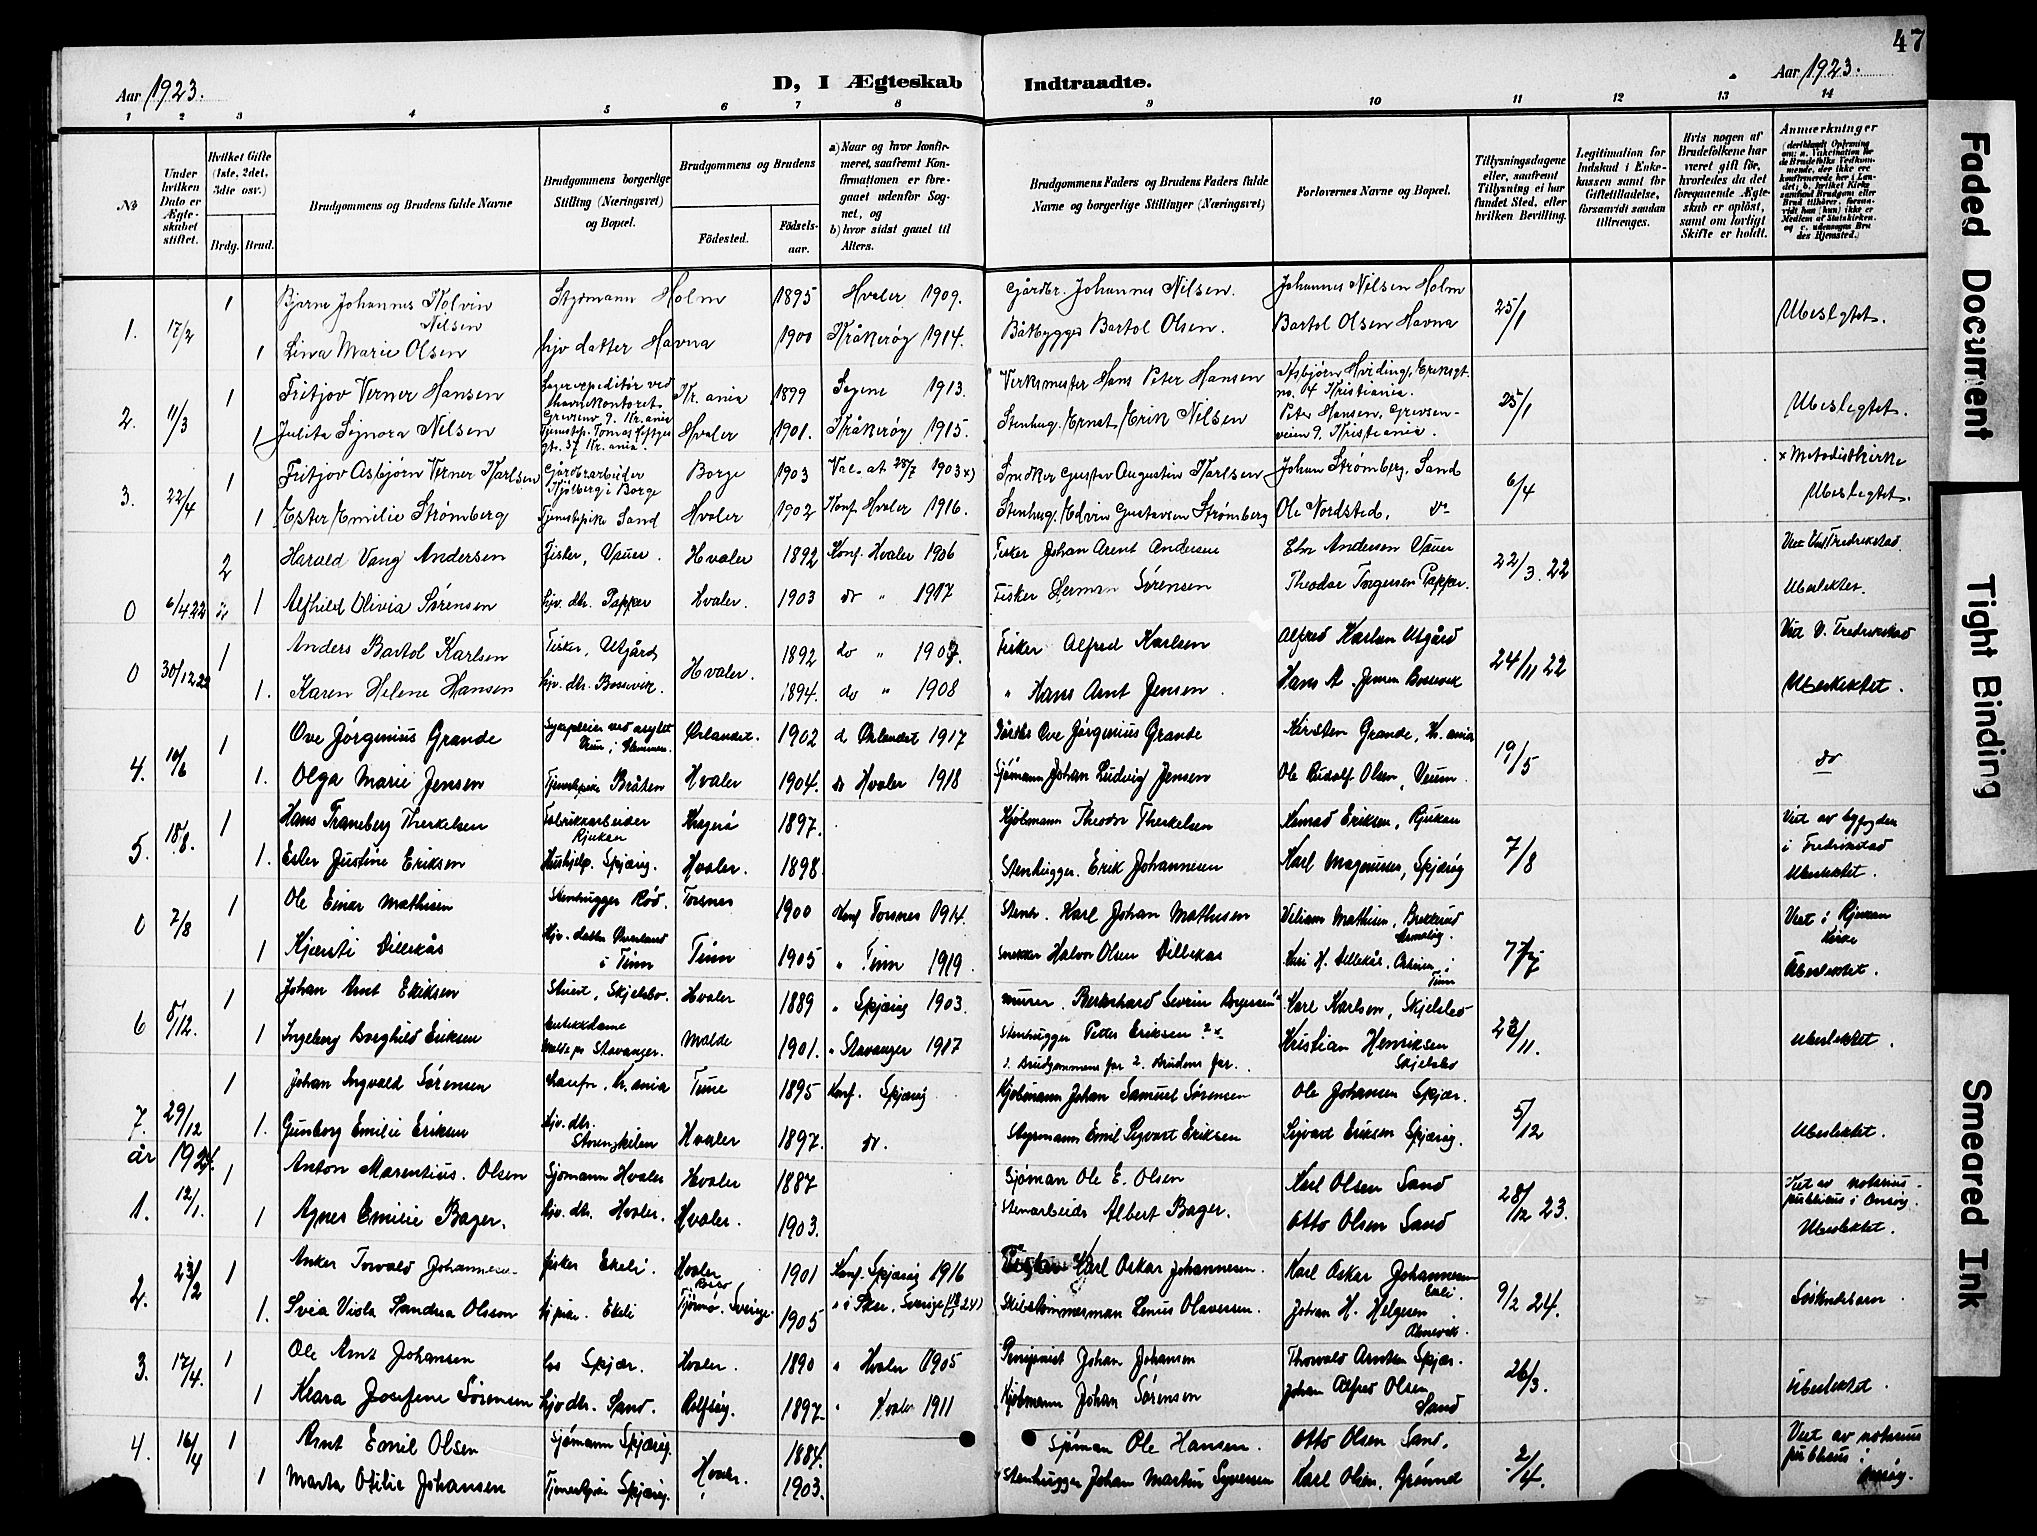 47
Aar 1923.
D, I Ægteskab Indtraadte.
Aar 1923.
1 2 3 4 5 6 7 8 9 10 11 12 13 14
No
Under hvilken Dato er Ægteskabet stiftet.
Hvilket Gifte (1ste, 2det, 3die osv.)
Brdg. Brud.
Brudgommens og Brudens fulde Navne
Brudgommens borgerlige Stilling (Næringsvei) og Bopæl.
Brudgommens og Brudens
Födested.
Födselsaar.
a) Naar og hvor konfirmeret, saafremt Konfirmationen er foregaaet udenfor Sognet, og
b) hvor sidst gaaet til Alters.
Brudgommens Faders og Brudens Faders fulde Navne og borgerlige Stillinger (Næringsvei)
Forlovernes Navne og Bopæl.
Tillysningsdagene eller, saafremt Tillysning ei har fundet Sted, efter hvilken Bevilling.
Legitimation for Indskud i Enkekassen samt for Giftetilladelse, forsaavidt saadan tiltrænges.
Hvis nogen af Brudefolkene har været gift før, hvorledes da det foregaaende Ægteskab er oplöst, samt om lovligt Skifte er holdt.
Anmerkninger
1. 17/2 1 Bjarne Johannes Kolvin Nilsen Styrmann Holm 1895 Hvaler 1909. Gårdbr. Johannes Nilsen. Johannes Nilsen Holm 25/1 Ubeslegtet.
1 Lina Marie Olsen hjv datter Havna 1900 Kråkerøy 1914. Båtbygger Bartol Olsen. Bartol Olsen Havna
2. 11/3 1 Fritjov Verner Hansen Lagerexpeditør ved Havnekontoret Grevsenv 9. Kr.ania Kr.ania 1899 Sagene 1913. Verksmester Hans Peter Hansen Asbjørn Hviding, Eriksgt. no. 4 Kristiania. 25/1 Ubeslegtet.
1 Julita Signora Nilsen Tjenestep. Tomas Heftyes gt. 37 Kr.ania. Hvaler 1901. Kråkerøy 1915. Stenhug. Ernst Erik Nilsen Peter Hansen, Grevsenveien 9. Kristiania.
3. 22/4 1 Fritjov Asbjørn Verner Karlsen Gårdbrarbeider Kjölberg i Borge Borge 1903 Vac. at 28/7 1903 x) Snedker Gustav Augustin Karlsen Johan Strømberg, Sand 6/4 x Metodistkirke
1 Ester Emilie Strømberg Tjenestepike Sand Hvaler 1902 Konf. Hvaler 1916. Stenhug. Edvin Gustavsen Strømberg Ole Nordsted, do Ubeslegtet.
0 6/4 22 2 Harald Vang Andersen Fisker, Vauer. Hvaler 1892 Konf. Hvaler 1906 Fisker Johan Arent Andersen Andersen Vauer 22/3. 22 Viet Fredrikstad.
1 Alfhild Olivia Sørensen hjv. dtr. Papper Hvaler. 1903 do " 1917 Fisker Herman Sørensen Theodor Torgersen Papper. Ubeslektet.
0 30/12 22 1 Anders Bartol Karlsen Fisker, Utgård Hvaler. 1892 do " 1907. Fisker Alfred Karlsen Alfred Karlsen Utgård 24/11 22 Viet V. Fredrikstad
1. Karen Helene Hansen hjv. dtr. Bøsevik. 1894. do " 1908 " Hans Arnt Jensen. Hans A. Jensen Bøsevik Ubeslektet.
4. 10/6 1 Ove Jörgenius Grande Ørlandet. 1902 d Ørlandet 1917 Gårdbr Ove Jörgenius Grande Kirsten Grande, Kr.ania 19/5 do
1. Olga Marie Jensen Tjenestepike Bråten Hvaler 1904. do Hvaler 1918 Sjömann Johan Ludvig Jensen Ole Rudolf Olsen, Veum.
5. 18/8. 1 Hans Traneberg Therkelsen Fabrikkarbeider Rjukan Kragerö 1897. Kjöbmann Theodor Therkelsen Konrad Eriksen, Rjukan 7/8 Viet av byfogden i Fredrikstad
1. Ester Justine Eriksen Hushjelp. Spjærög. Hvaler. 1898. Stenhugger. Erik Johannesen Karl Magnusen, Spjærög Ubeslektet.
0 7/8 1 Ole Einar Mathisen Stenhugger Röd. Torsnes 1900 Konf Torsnes 1914. Stenar. Karl Johan Mathisen Viliam Mathisen, 7/7 Viet i Rjukan kirke
1 Kjærsti Dillekås Hjv. datter i Tinn Tinn 1905 " Tinn 1919. Snekker Halvor Olsen Dillekås H. Dillekås, Tinn Ubeslektet.
6 8/12. 1 Johan Arnt Eriksen Skjelsbo. Hvaler 1889 " Spjærög 1903. murer. Karl Karlsen, Skjelsbo 23/11. Ubeslektet.
1 Ingeborg Borghild Eriksen Stavanger. Molde 1901. " Stavanger 1917 Stenhugger Petter Eriksen 2x Kristian Henriksen Skjelsbo
1. Brudgommens far 2. Brudens far.
7. 29/12 1 Johan Ingvald Sørensen Kr.ania Tune 1895 Konf. Spjærög Kjöbmann Johan Samuel Sørensen Ole Johansen Spjær. 5/12
1. Gunborg Emilie Eriksen Hjv. dtr. Hvaler 1897. do. Styrmann Emil Sigvart Eriksen Sigvart Eriksen Spjærög. Ubeslektet.
år 1924.
1. 12/1. 1 Anton Marentius. Olsen Sjømann Hvaler Hvaler 1887 Sjøman Ole E. Olsen Karl Olsen Sand 28/12 23. Viet av notarius publicus i Onsöy.
1 Agnes Emilie Bager. hjv. dtr. Hvaler. Hvaler. 1903. Stenarbeids Albert Bager. Otto Olsen Sand Ubeslektet
2. 23/2 1 Anker Torvald Johannesen fisker Ekeli. Hvaler 1901 Konf. Spjærög 1916 Karl Oskar Johannesen. Karl Oskar Johannesen Ekeli. 9/2 24. Söskendebarn
1. Svea Viola Sandra Olsson Ekeli Tjörnö. Sverige. 1905 Sverige Skibstömmerman Linus Olavessen. Johan H. Helgesen
3. 17/4. 1 Ole Arnt Johansen los Spjær. Hvaler. 1890 " Hvaler 1905 Pensjonist Johan Johansen Thorvald Arntsen Spjær. 26/3.
1 Klara Josefine Sørensen hjv dtr. Sand. Rolfsöy. 1897. " Hvaler 1911 Kjöbmann Johan Sørensen Johan Alfred Olsen Sand Ubeslektet.
4. 16/4 1 Arnt Emil Olsen Sjömann Spjærög. Hvaler. 1884. Sjöman Ole Hansen. Otto Olsen Sand. 2/4. Viet av notarius publicus i Onsöy.
1 Marta Otilie Johansen Tjenestepike Spjærög. 1903. Stenhugger Johan Martin Syversen Karl Olsen. Grönnd
Faded Document
Tight Binding
Smeared Ink